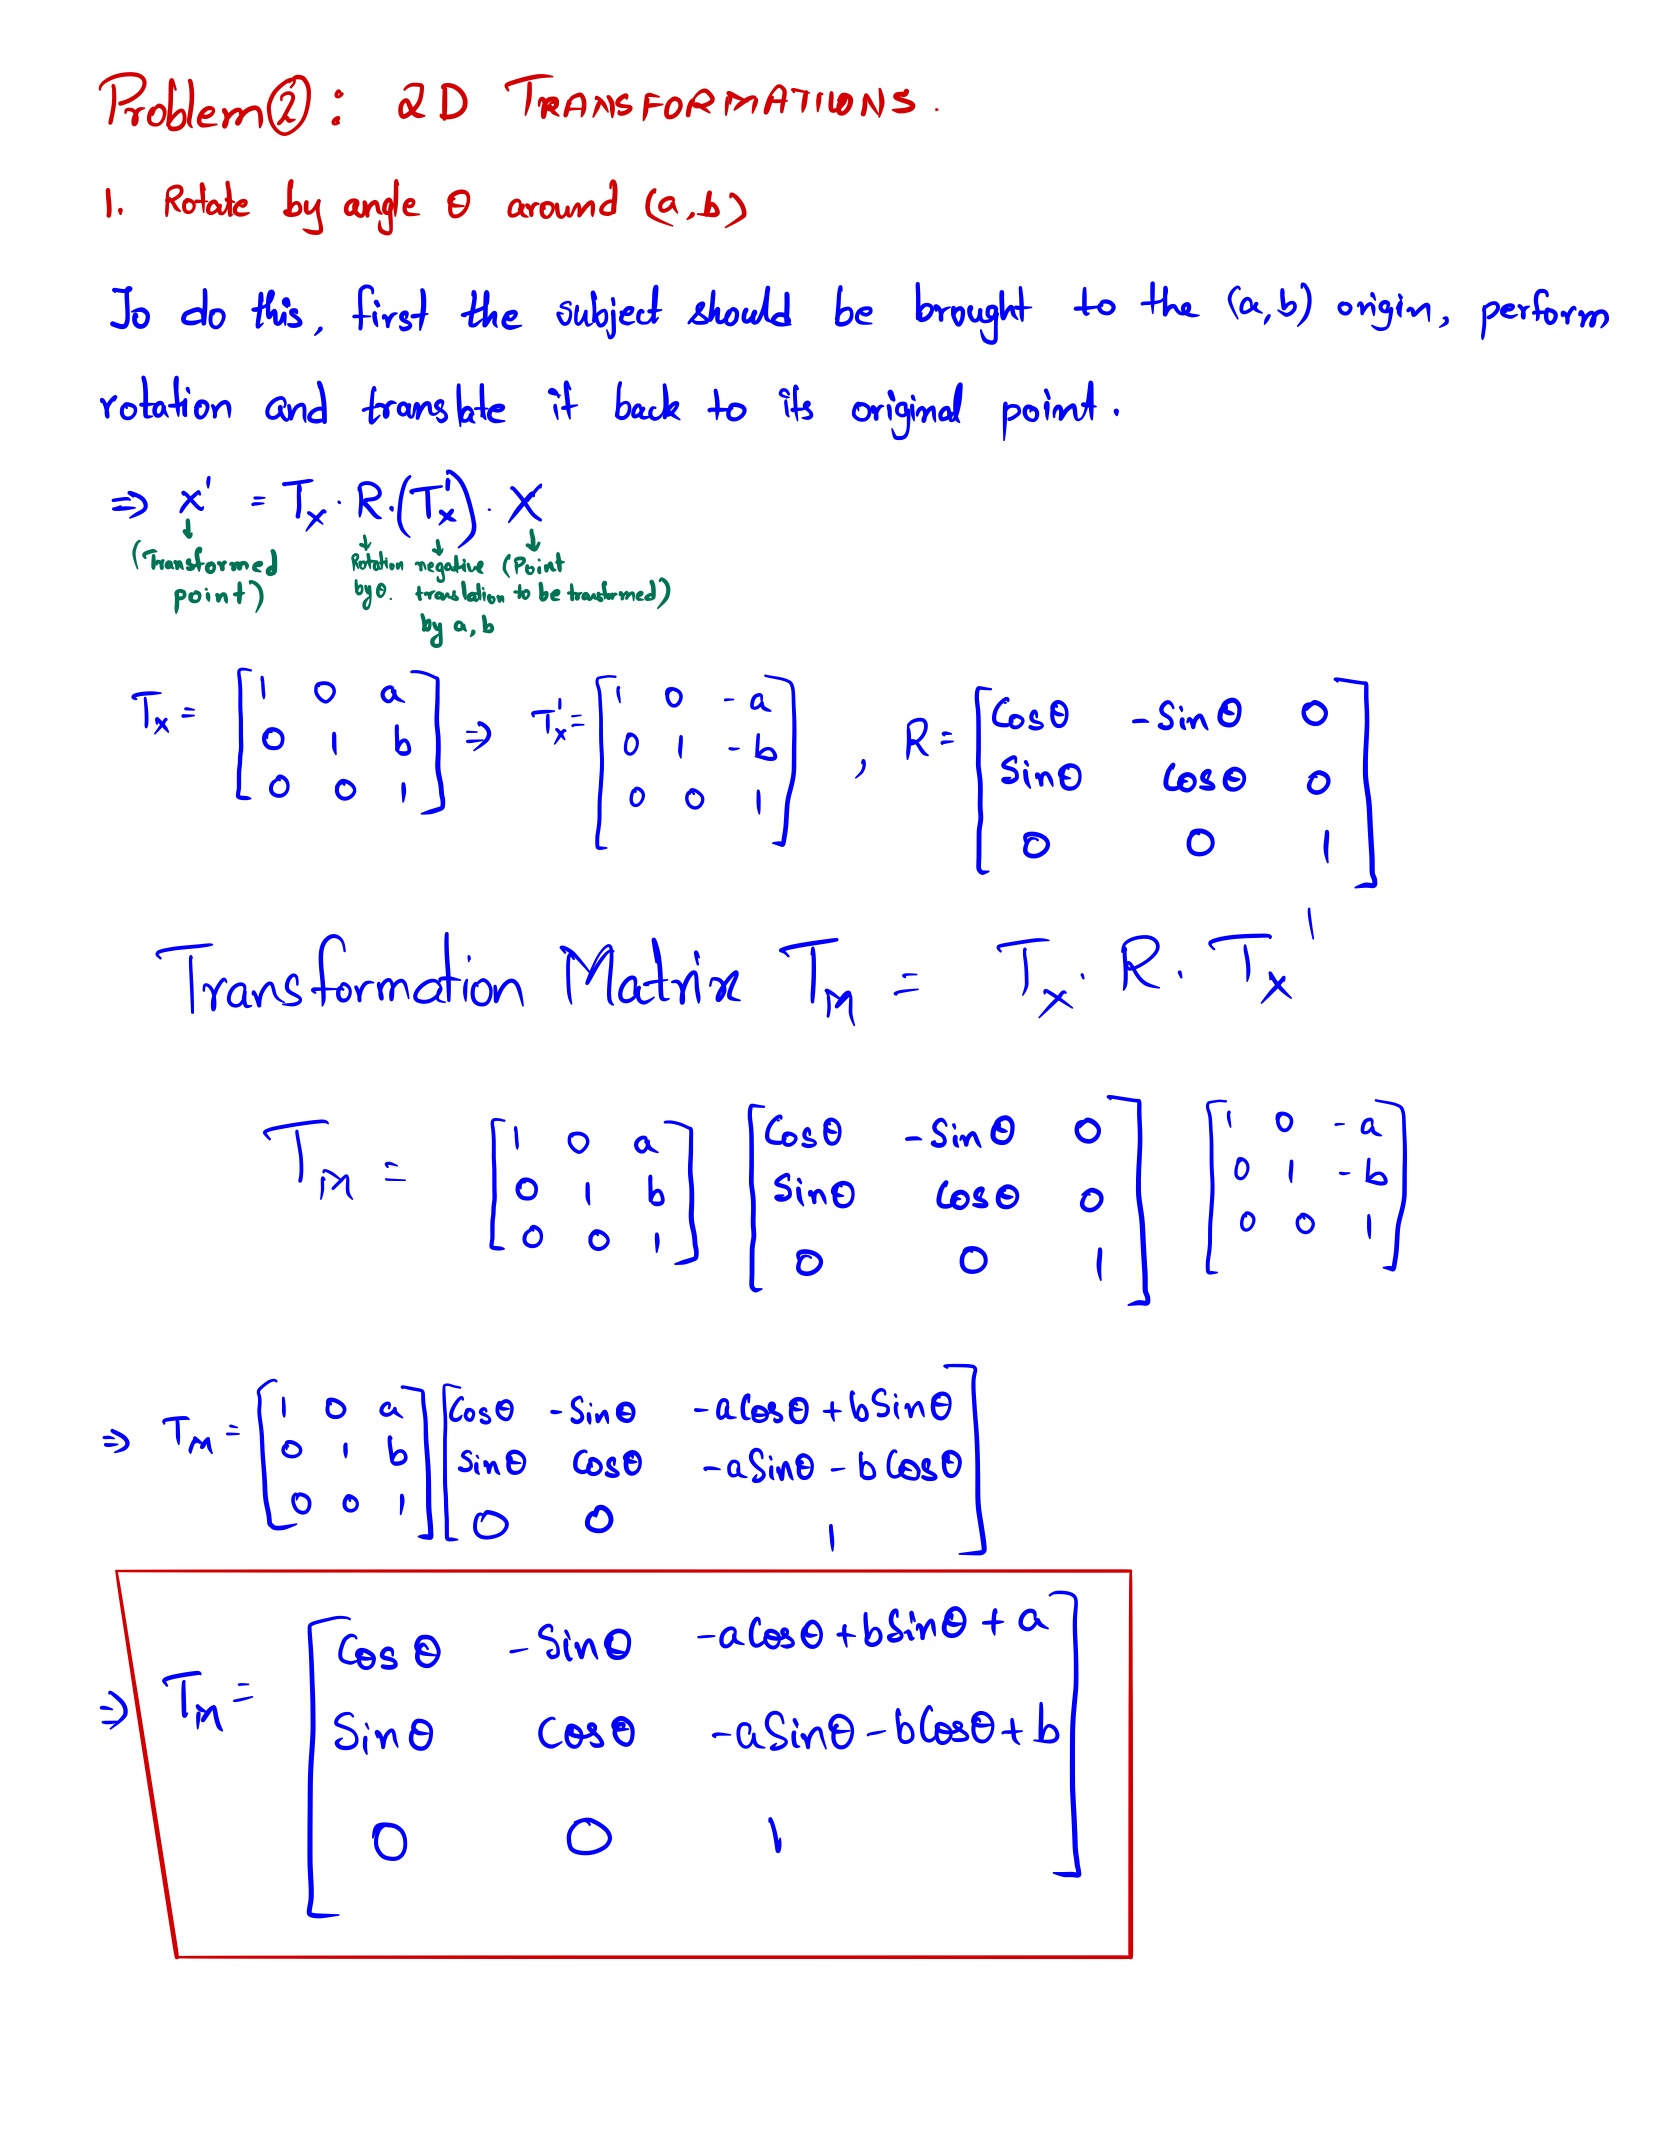 Problem ②: 2D TRANSFORMATIONS.
1. Rotate by angle θ around (a,b)
To do this, first the subject should be brought to the (a,b) origin, perform
rotation and translate it back to its original point.
⇒ x' = Tx · R · (Tx') · X
(Transformed point)
Rotation by θ.
negative translation by a, b
(Point to be transformed)
Tx = [1 0 a ⇒ Tx' = [1 0 -a , R = [Cosθ -Sinθ 0
0 1 b 0 1 -b Sinθ Cosθ 0
0 0 1] 0 0 1] 0 0 1]
Transformation Matrix TM = Tx · R · Tx'
TM = [1 0 a [Cosθ -Sinθ 0 [1 0 -a
0 1 b Sinθ Cosθ 0 0 1 -b
0 0 1] 0 0 1] 0 0 1]
⇒ TM = [1 0 a [Cosθ -Sinθ -aCosθ + bSinθ
0 1 b Sinθ Cosθ -aSinθ - bCosθ
0 0 1] 0 0 1]
⇒ TM = [Cosθ -Sinθ -aCosθ + bSinθ + a
Sinθ Cosθ -aSinθ - bCosθ + b
0 0 1]